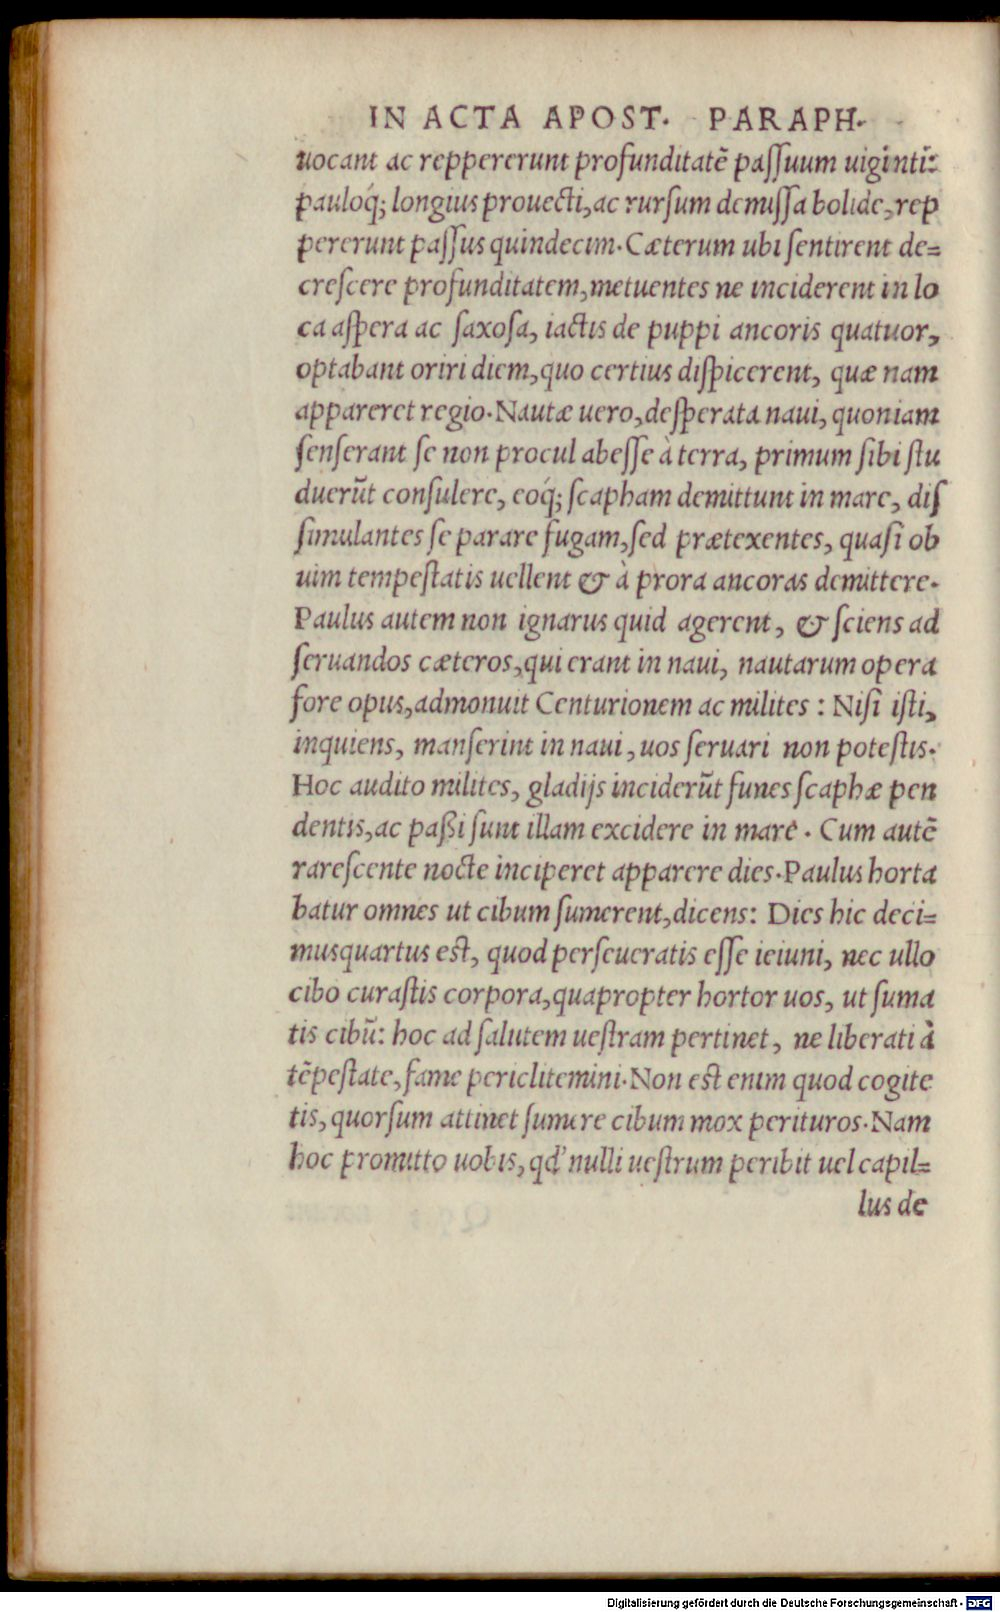 IN ACTA APOST. PARAPH.
uocant ac reppererunt profunditatē passuum uiginti:
pauloq́; longius prouecti, ac rursum demissa bolide, rep
pererunt passus quindecim. Cæterum ubi sentirent de=
crescere profunditatem, metuentes ne inciderent in lo
ca aspera ac saxosa, iactis de puppi ancoris quatuor,
optabant oriri diem, quo certius dispicerent, quæ nam
appareret regio. Nautæ uero, desperata naui, quoniam
senserant se non procul abesse à terra, primum sibi stu
duerūt consulere, eoq́; scapham demittunt in mare, dis
simulantes se parare fugam, sed prætexentes, quasi ob
uim tempestatis uellent & à prora ancoras demittere.
Paulus autem non ignarus quid agerent, & sciens ad
seruandos cæteros, qui erant in naui, nautarum opera
fore opus, admonuit Centurionem ac milites : Nisi isti,
inquiens, manserint in naui, uos seruari non potestis.
Hoc audito milites, gladijs inciderūt funes scaphæ pen
dentis, ac paßi sunt illam excidere in mare. Cum autē
rarescente nocte inciperet apparere dies. Paulus horta
batur omnes ut cibum sumerent, dicens: Dies hic deci=
musquartus est, quod perseueratis esse ieiuni, nec ullo
cibo curastis corpora, quapropter hortor uos, ut suma
tis cibū: hoc ad salutem uestram pertinet, ne liberati à
tēpestate, fame periclitemini. Non est enim quod cogite
tis, quorsum attinet sumere cibum mox perituros. Nam
hoc promitto uobis, qd' nulli uestrum peribit uel capil=
lus de
Digitalisierung gefördert durch die Deutsche Forschungsgemeinschaft - DFG